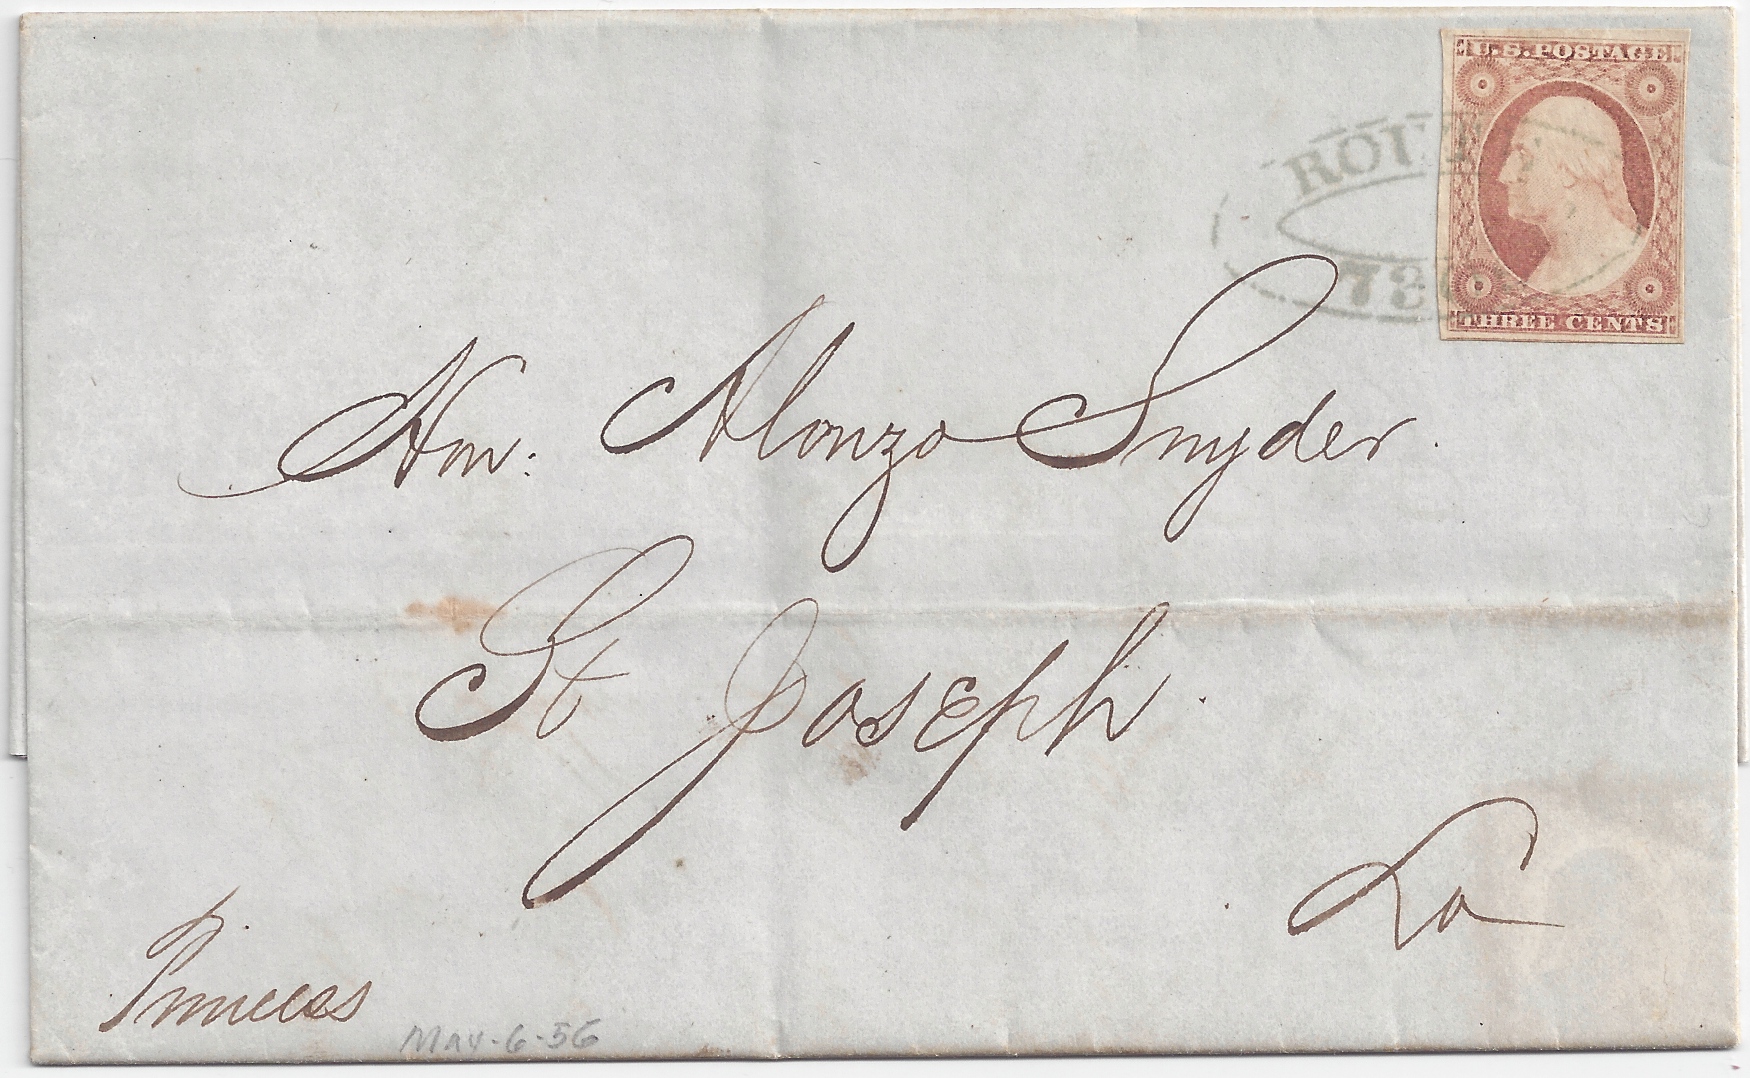 U.S. POSTAGE
THREE CENTS
Hon. Alonzo Snyder.
St Joseph.
La
Princess
May-6-56